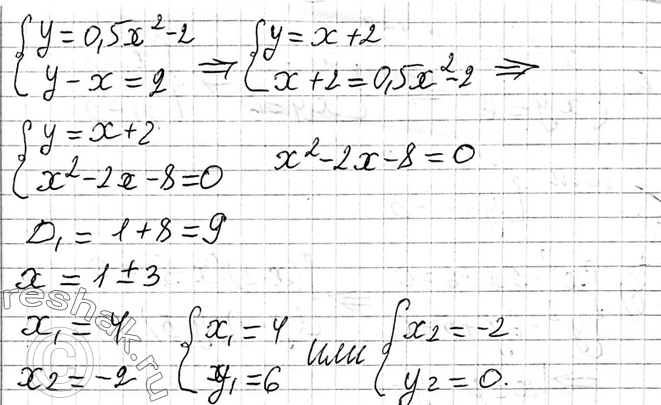 { y = 0,5x² - 2 ⇒ { y = x + 2
{ y - x = 2 { x + 2 = 0,5x² - 2 ⇒
{ y = x + 2
{ x² - 2x - 8 = 0 x² - 2x - 8 = 0
D₁ = 1 + 8 = 9
x = 1 ± 3
x₁ = 4 { x₁ = 4 или { x₂ = -2
x₂ = -2 { y₁ = 6 { y₂ = 0.
reshak.ru